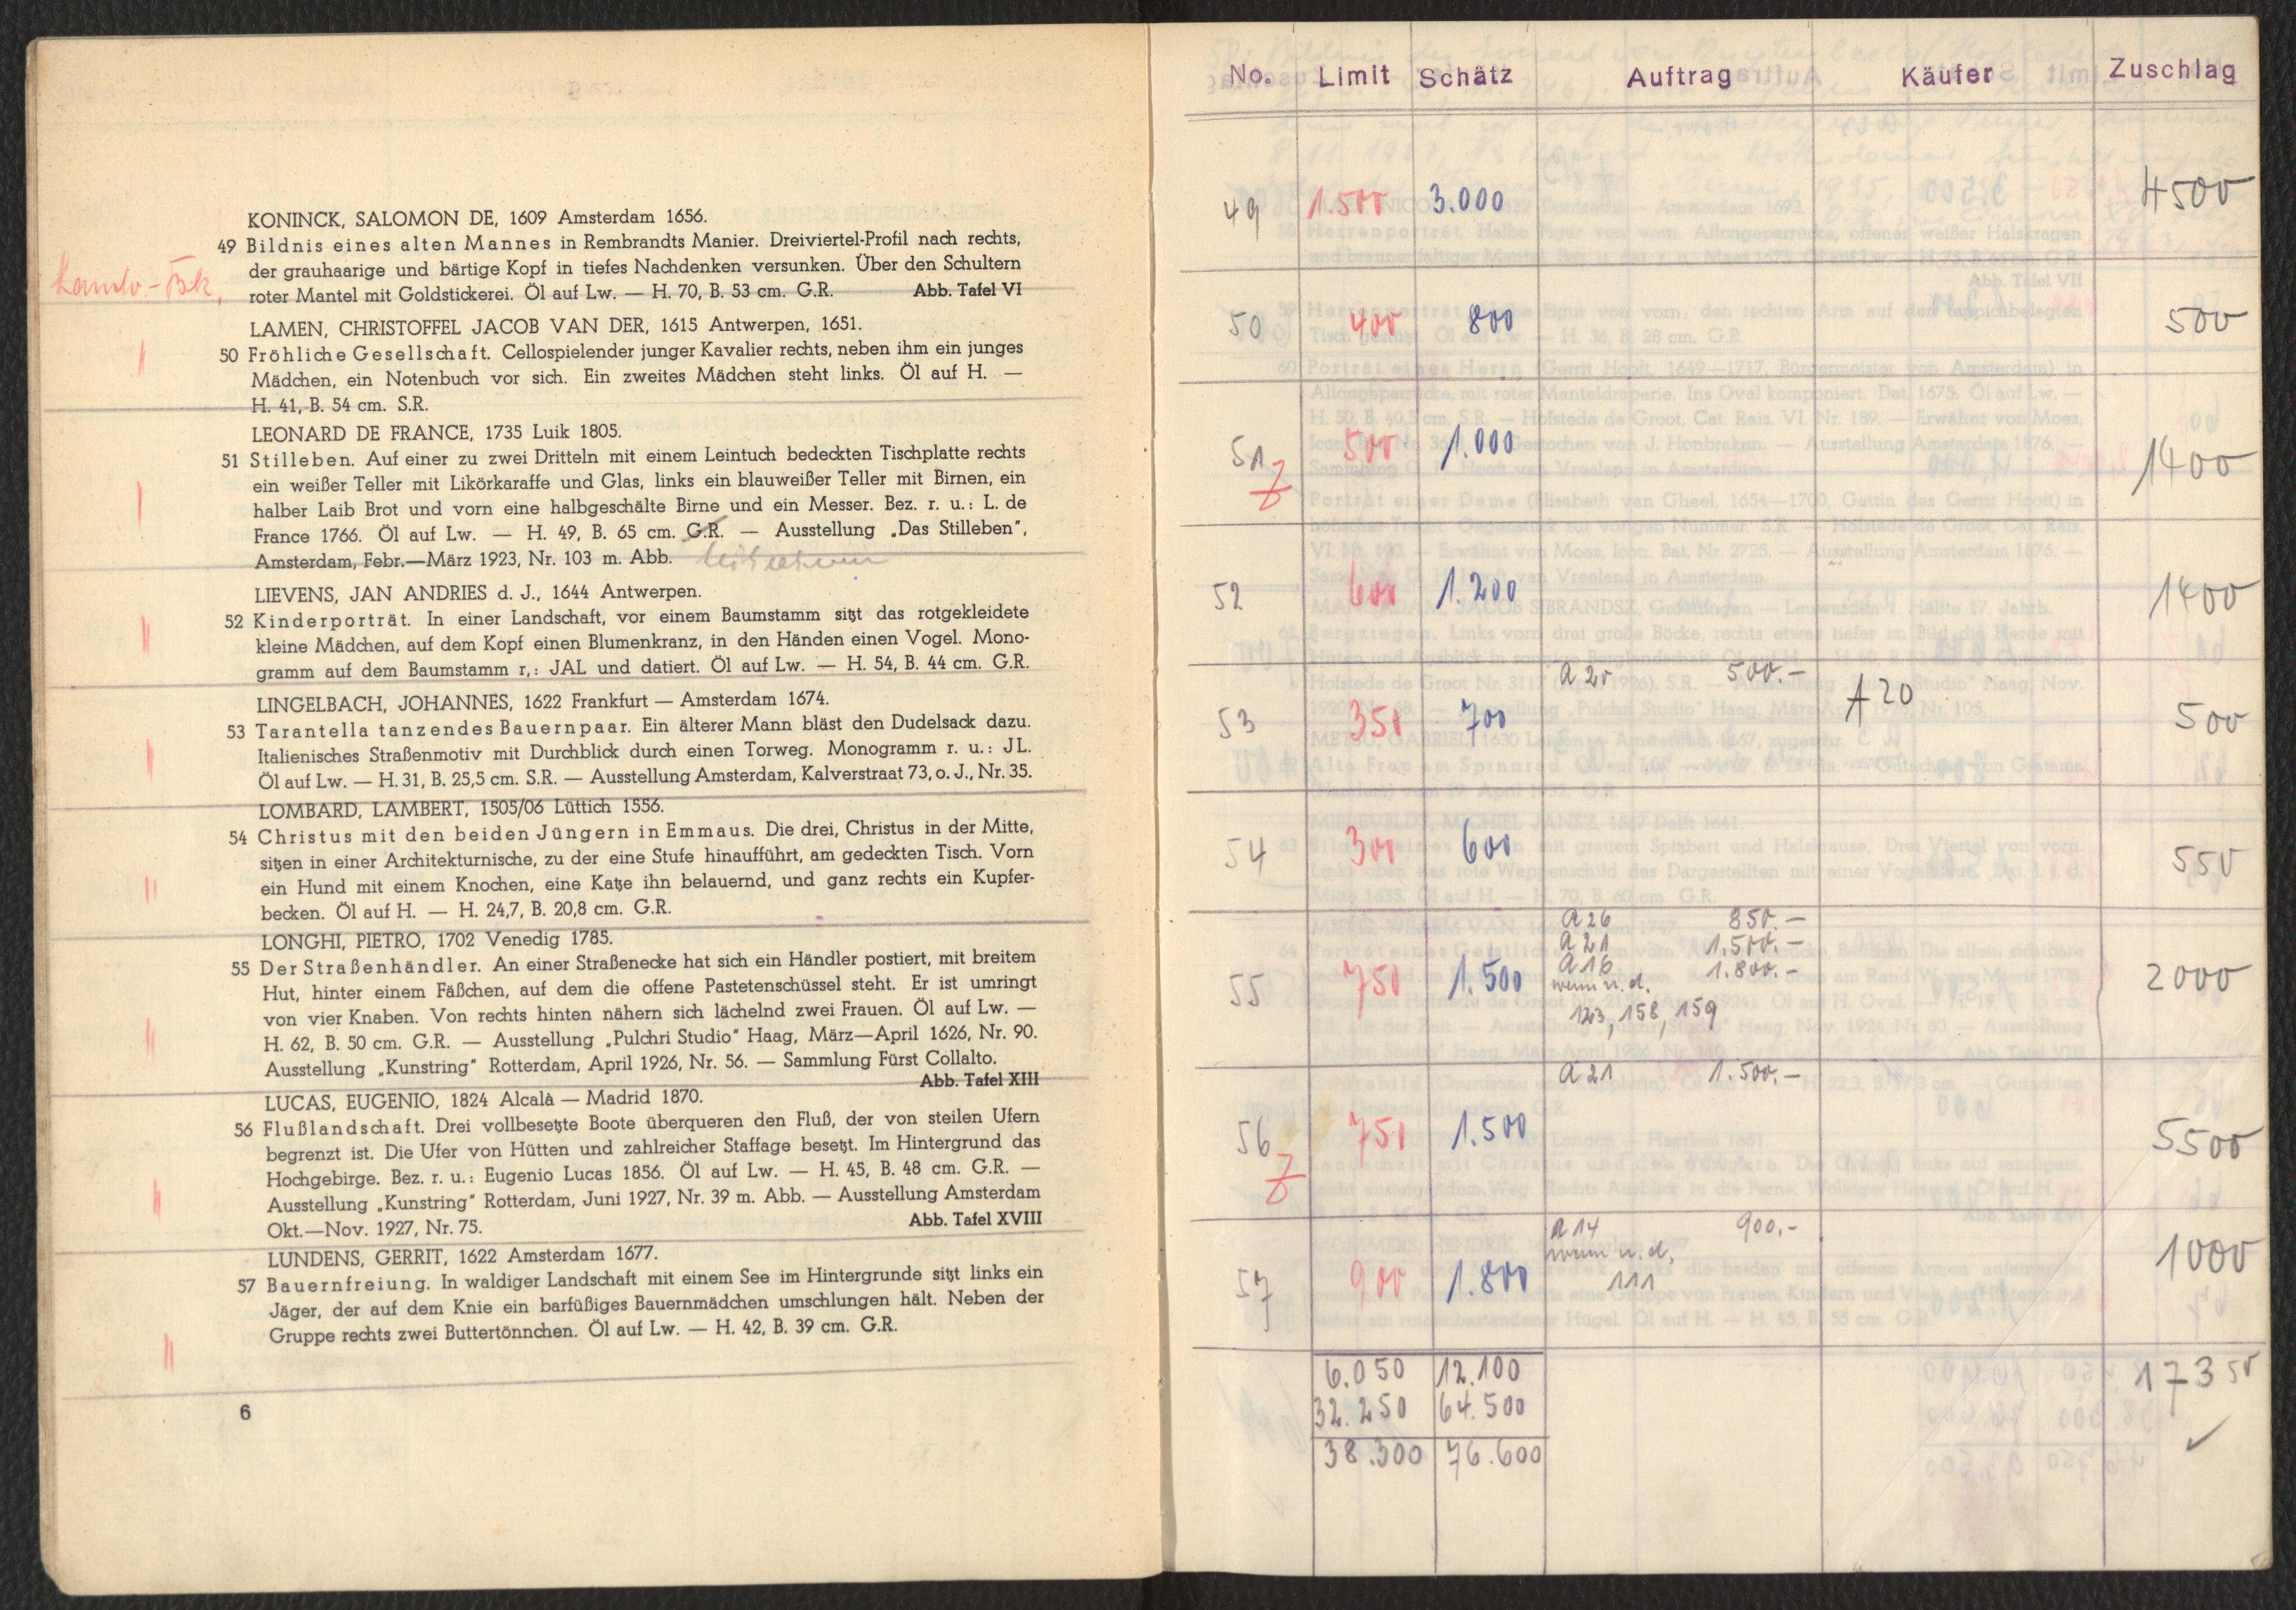 KONINCK, SALOMON DE, 1609 Amsterdam 1656.
49 Bildnis eines alten Mannes in Rembrandts Manier. Dreiviertel-Profil nach rechts,
der grauhaarige und bärtige Kopf in tiefes Nachdenken versunken. Über den Schultern
roter Mantel mit Goldstickerei. Öl auf Lw. — H. 70, B. 53 cm. G.R. Abb. Tafel VI
LAMEN, CHRISTOFFEL JACOB VAN DER, 1615 Antwerpen, 1651.
50 Fröhliche Gesellschaft. Cellospielender junger Kavalier rechts, neben ihm ein junges
Mädchen, ein Notenbuch vor sich. Ein zweites Mädchen steht links. Öl auf H. —
H. 41, B. 54 cm. S.R.
LEONARD DE FRANCE, 1735 Luik 1805.
51 Stilleben. Auf einer zu zwei Dritteln mit einem Leintuch bedeckten Tischplatte rechts
ein weißer Teller mit Likörkaraffe und Glas, links ein blauweißer Teller mit Birnen, ein
halber Laib Brot und vorn eine halbgeschälte Birne und ein Messer. Bez. r. u.: L. de
France 1766. Öl auf Lw. — H. 49, B. 65 cm. G.R. — Ausstellung „Das Stilleben",
Amsterdam, Febr.—März 1923, Nr. 103 m. Abb.
LIEVENS, JAN ANDRIES d. J., 1644 Antwerpen.
52 Kinderporträt. In einer Landschaft, vor einem Baumstamm sitzt das rotgekleidete
kleine Mädchen, auf dem Kopf einen Blumenkranz, in den Händen einen Vogel. Mono-
gramm auf dem Baumstamm r,: JAL und datiert. Öl auf Lw. — H. 54, B. 44 cm. G.R.
LINGELBACH, JOHANNES, 1622 Frankfurt — Amsterdam 1674.
53 Tarantella tanzendes Bauernpaar. Ein älterer Mann bläst den Dudelsack dazu.
Italienisches Straßenmotiv mit Durchblick durch einen Torweg. Monogramm r. u.: JL.
Öl auf Lw. — H. 31, B. 25,5 cm. S.R. — Ausstellung Amsterdam, Kalverstraat 73, o. J., Nr. 35.
LOMBARD, LAMBERT, 1505/06 Lüttich 1556.
54 Christus mit den beiden Jüngern in Emmaus. Die drei, Christus in der Mitte,
sitzen in einer Architekturnische, zu der eine Stufe hinaufführt, am gedeckten Tisch. Vorn
ein Hund mit einem Knochen, eine Katze ihn belauernd, und ganz rechts ein Kupfer-
becken. Öl auf H. — H. 24,7, B. 20,8 cm. G.R.
LONGHI, PIETRO, 1702 Venedig 1785.
55 Der Straßenhändler. An einer Straßenecke hat sich ein Händler postiert, mit breitem
Hut, hinter einem Fäßchen, auf dem die offene Pastetenschüssel steht. Er ist umringt
von vier Knaben. Von rechts hinten nähern sich lächelnd zwei Frauen. Öl auf Lw. —
H. 62, B. 50 cm. G.R. — Ausstellung „Pulchri Studio" Haag, März—April 1626, Nr. 90.
Ausstellung „Kunstring" Rotterdam, April 1926, Nr. 56. — Sammlung Fürst Collalto.
Abb. Tafel XIII
LUCAS, EUGENIO, 1824 Alcalà — Madrid 1870.
56 Flußlandschaft. Drei vollbesetzte Boote überqueren den Fluß, der von steilen Ufern
begrenzt ist. Die Ufer von Hütten und zahlreicher Staffage besetzt. Im Hintergrund das
Hochgebirge. Bez. r. u.: Eugenio Lucas 1856. Öl auf Lw. — H. 45, B. 48 cm. G.R. —
Ausstellung „Kunstring" Rotterdam, Juni 1927, Nr. 39 m. Abb. — Ausstellung Amsterdam
Okt.—Nov. 1927, Nr. 75. Abb. Tafel XVIII
LUNDENS, GERRIT, 1622 Amsterdam 1677.
57 Bauernfreiung. In waldiger Landschaft mit einem See im Hintergrunde sitzt links ein
Jäger, der auf dem Knie ein barfüßiges Bauernmädchen umschlungen hält. Neben der
Gruppe rechts zwei Buttertönnchen. Öl auf Lw. — H. 42, B. 39 cm. G.R.
6
No. Limit Schätz Auftrag Käufer Zuschlag
49 1.500 3.000 4500
50 400 800 500
51 500 1.000 1400
Z
52 600 1.200 1400
A 20 500.-
53 350 700 A 20 500
54 300 600 550
A 26 850.-
A 21 1.500.-
A 16 1.800.-
55 750 1.500 wenn n. d. 2000
123, 158, 159
A 21 1.500.-
56 750 1.500 5500
Z
A 14 900.-
wenn n. d.
57 900 1.800 111 1000
6.050 12.100 17350
32.250 64.500
38.300 76.600